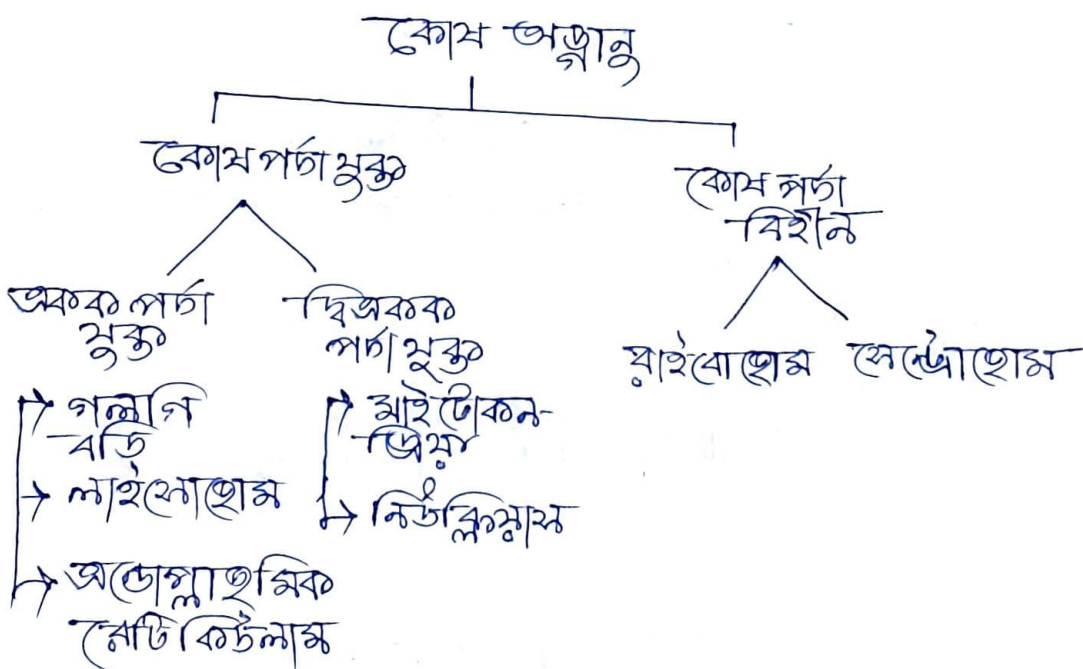 কোষ অঙ্গানু
কোষ পর্দা যুক্ত
কোষ পর্দা
বিহীন
একক পর্দা
যুক্ত
দ্বিএকক
পর্দা যুক্ত
রাইবোজোম
সেন্ট্রোজোম
গলগি
বডি
লাইসোজোম
এন্ডোপ্লাজমিক
রেটিকিউলাম
মাইটোকন-
ড্রিয়া
নিউক্লিয়াস